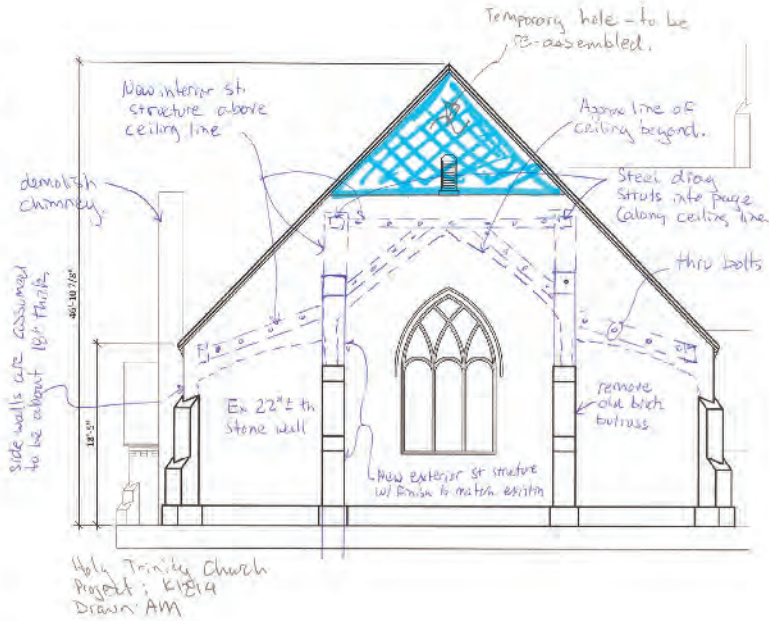 Temporary hole - to be
re-assembled.
New interior st.
structure above
ceiling line
Approx line of
ceiling beyond.
demolish
chimney
Steel drag
struts into page
(along ceiling line
thru bolts
46'-10 7/8"
18'-5"
side walls are assumed
to be about 18± thick
Ex 22"± th
stone wall
remove
old brick
butruss
New exterior st structure
w/ finish to match existin
Holy Trinity Church
Project: K1214
Drawn: AM